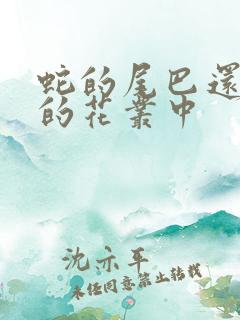 蛇的尾巴還
的花叢中
沈亦平
未经同意禁止转载